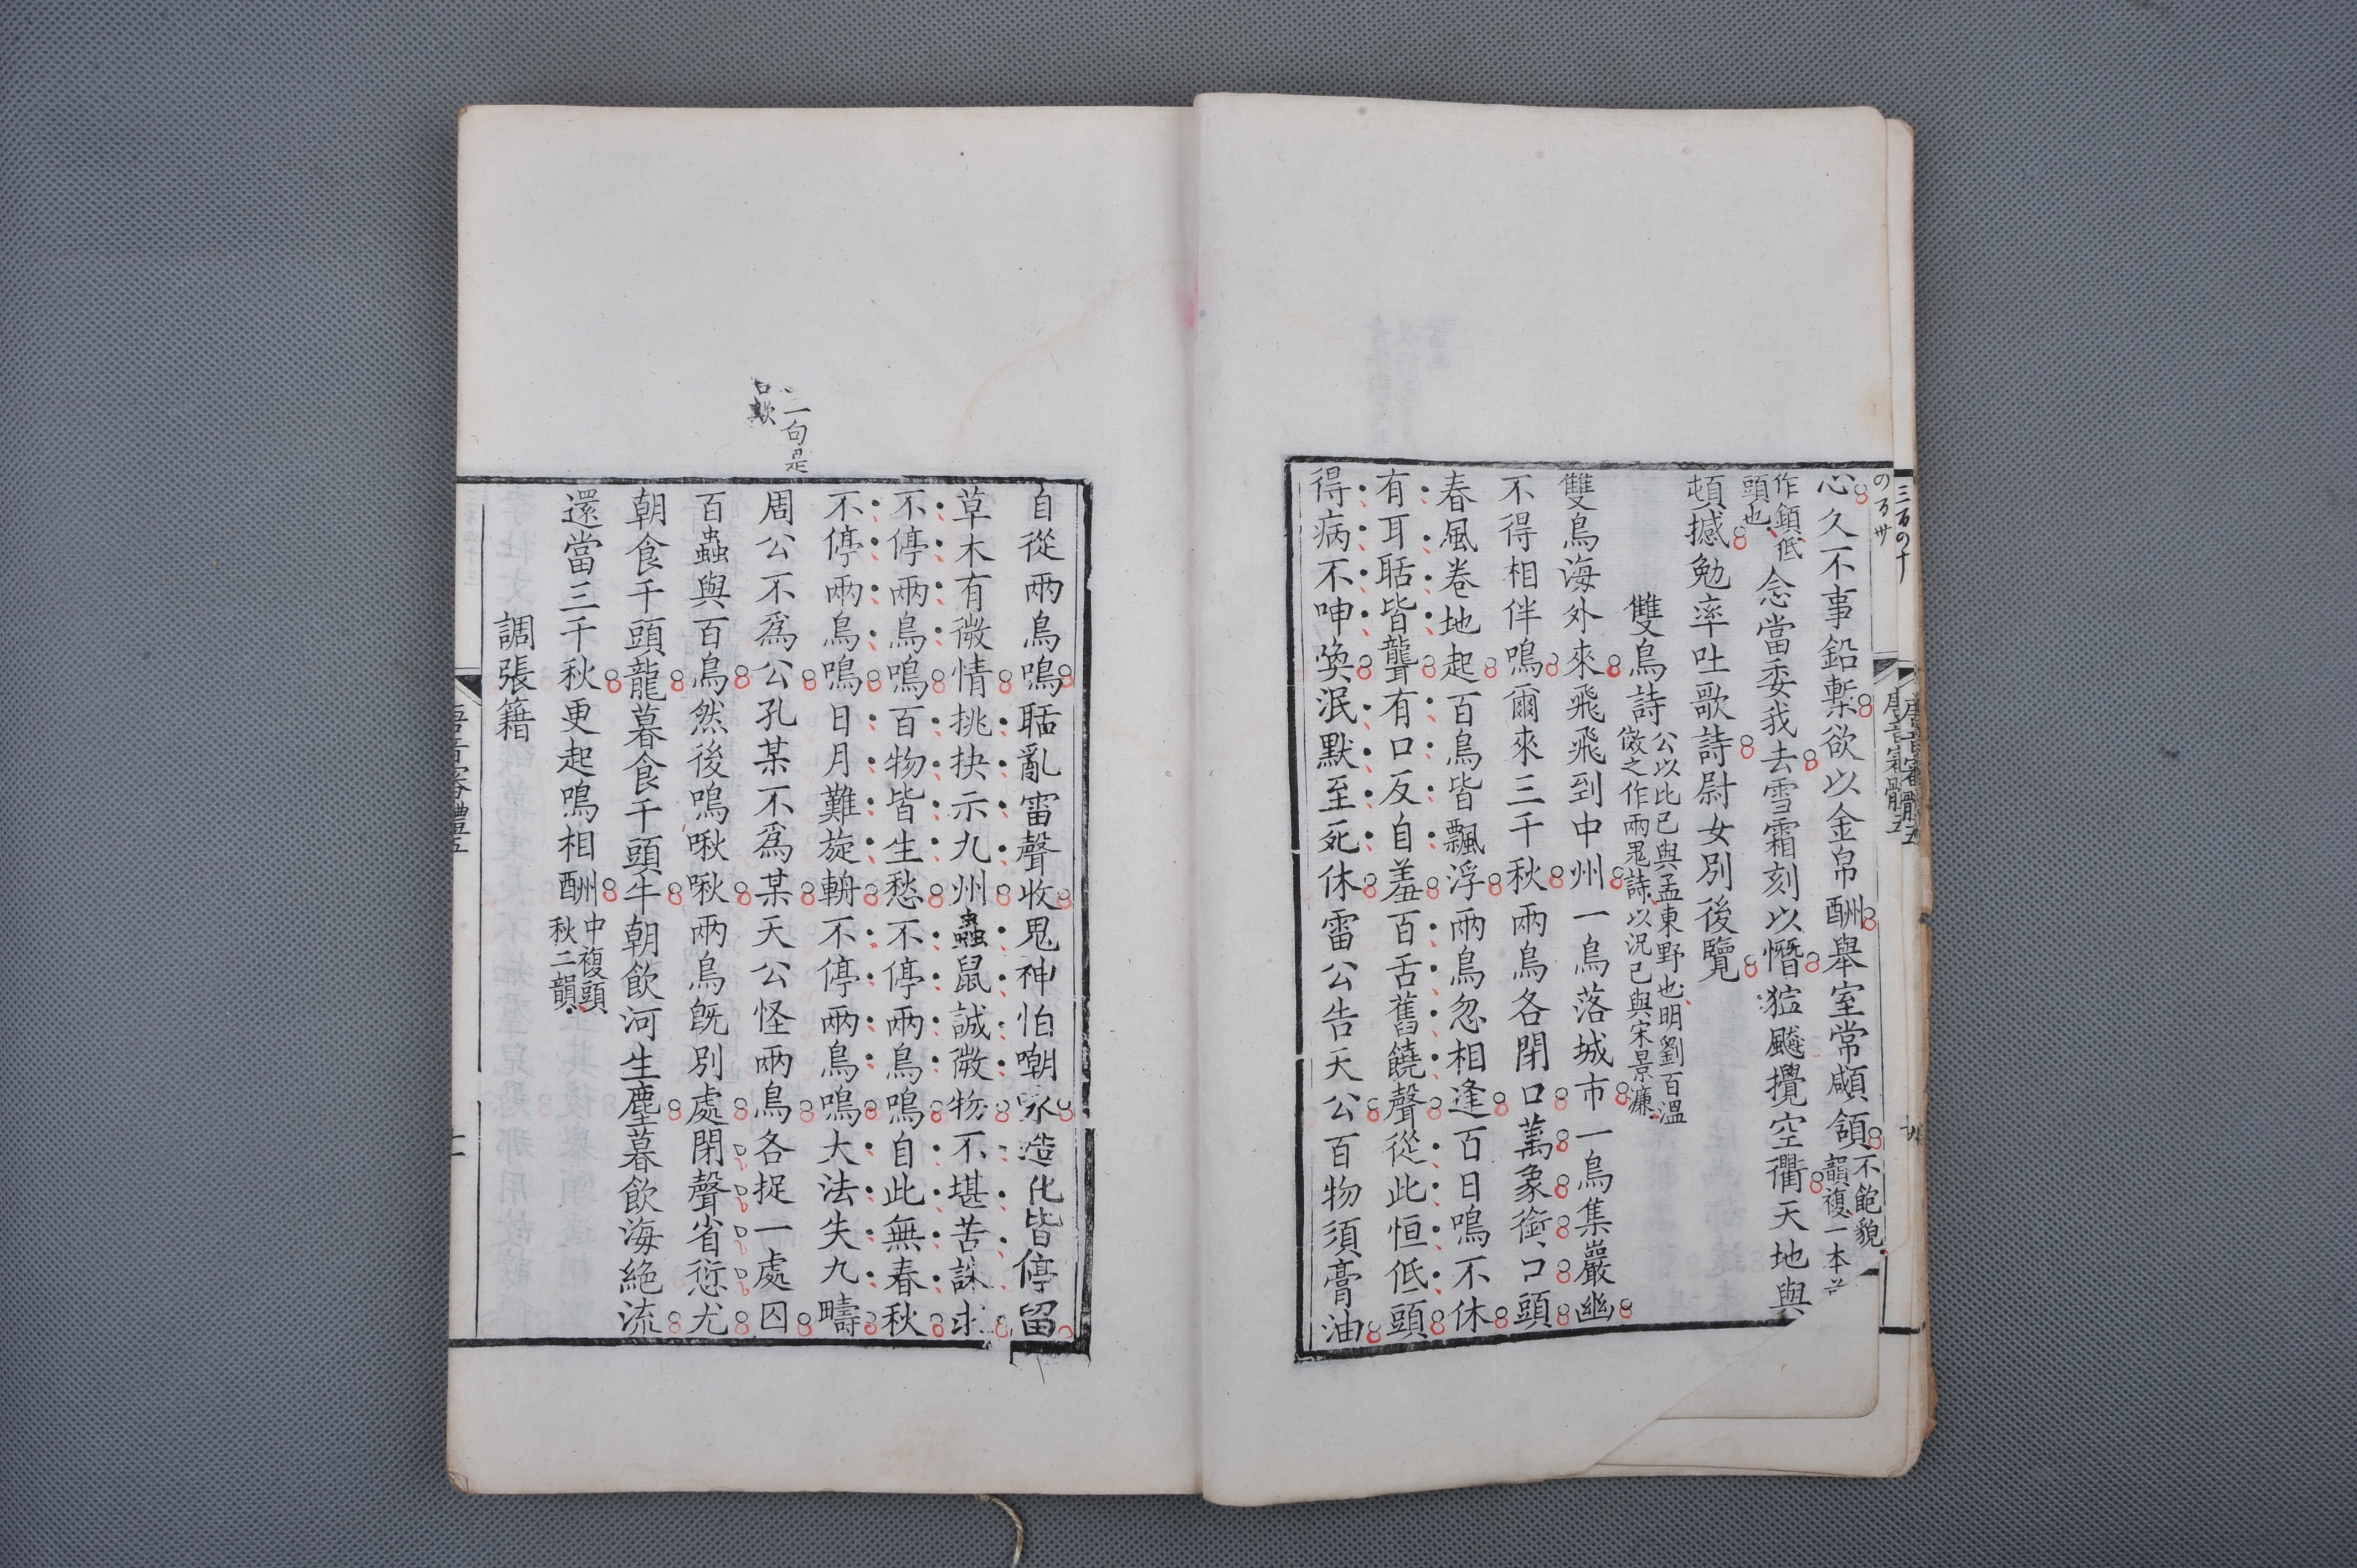 心久不事鉛槧欲以金帛酬舉室常顑頷不飽貌韻複一本
作鎮低頭也念當委我去雪霜刻以憯獰飈攪空衢天地與
頓撼勉率吐歌詩尉女別後覽
雙鳥詩公以比已與孟東野也明劉百溫
倣之作兩鬼詩以況已與宋景濂
雙鳥海外來飛飛到中州一鳥落城市一鳥集巖幽
不得相伴鳴爾來三千秋兩鳥各閉口萬象銜口頭
春風卷地起百鳥皆飄浮兩鳥忽相逢百日鳴不休
有耳聒皆聾有口反自羞百舌舊饒聲從此恒低頭
得病不呻喚泯默至死休雷公告天公百物須膏油
唐音審體五
三百の十
の百卅
自從兩鳥鳴聒亂雷聲收鬼神怕嘲咏造化皆停留
草木有微情挑抉示九州蟲鼠誠微物不堪苦誅求
不停兩鳥鳴百物皆生愁不停兩鳥鳴自此無春秋
不停兩鳥鳴日月難旋輈不停兩鳥鳴大法失九疇
周公不爲公孔某不爲某天公怪兩鳥各捉一處囚
百蟲與百鳥然後鳴啾啾兩鳥旣別處閉聲省愆尤
朝食千頭龍暮食千頭牛朝飲河生塵暮飲海絕流
還當三千秋更起鳴相酬中複頭
秋二韻
調張籍
二句是
歟